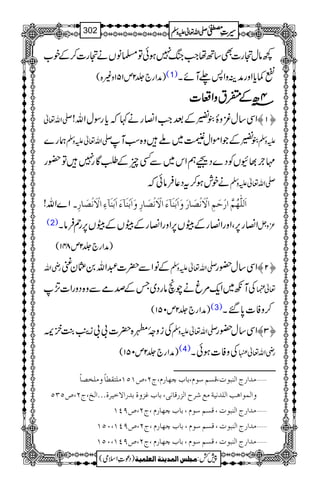 سیرتِ مصطفیٰ صلی اللہ تعالیٰ علیہ وسلم
302
کچھ مال تجارت بھی ساتھ تھا جب جنگ نہیں ہوئی تو مسلمانوں نے تجارت کر کے خوب
نفع کمایا اور مدینہ واپس چلے آئے۔(1) (مدارج جلد۲ ص۱۵۱ وغیرہ)
۴ھ کے متفرق واقعات
﴿۱﴾ اسی سال غزوۂ بنو نضیر کے بعد جب انصار نے کہا کہ یا رسول اللہ! صلی اللہ تعالیٰ
علیہ وسلم بنو نضیر کے جو اموال غنیمت میں ملے ہیں وہ سب آپ صلی اللہ تعالیٰ علیہ وسلم ہمارے
مہاجر بھائیوں کو دے دیجیے ہم اس میں سے کسی چیز کے طلب گار نہیں ہیں تو حضور
صلی اللہ تعالیٰ علیہ وسلم نے خوش ہو کر یہ دعا فرمائی کہ
اَللّٰھُمَّ ارْحَمِ الْاَنْصَارَ وَاَبْنَآءَ الْاَنْصَارِ وَاَبْنَآءَ اَبْنَآءِ الْاَنْصَارِ۔ اے اللہ!
عزوجل انصار پر، اور انصار کے بیٹوں پر اور انصار کے بیٹوں کے بیٹوں پر رحم فرما۔(2)
(مدارج جلد۲ ص۱۴۸)
﴿۲﴾ اسی سال حضور صلی اللہ تعالیٰ علیہ وسلم کے نواسے حضرت عبداللہ بن عثمان غنی رضی اللہ
تعالیٰ عنہما کی آنکھ میں ایک مرغ نے چونچ مار دی جس کے صدمے سے وہ دو رات تڑپ
کر وفات پا گئے۔(3) (مدارج جلد۲ ص۱۵۰)
﴿۳﴾ اسی سال حضور صلی اللہ تعالیٰ علیہ وسلم کی زوجۂ مطہرہ حضرت بی بی زینب بنت خزیمہ
رضی اللہ تعالیٰ عنہا کی وفات ہوئی۔(4) (مدارج جلد۲ ص۱۵۰)
.....مدارج النبوت،قسم سوم،باب چہارم،ج۲،ص۱۵۱ملتقطاً وملخصاً
والمواهب اللدنية مع شرح الزرقانی،باب غزوة بدرالاخیرة...الخ،ج۲،ص۵۳۵
.....مدارج النبوت ، قسم سوم ، باب چہارم ،ج۲،ص۱۴۹
.....مدارج النبوت ، قسم سوم ، باب چہارم ،ج۲،ص۱۴۹،۱۵۰
.....مدارج النبوت ، قسم سوم ، باب چہارم ،ج۲،ص۱۴۹،۱۵۰
پیش کش: مجلس المدینة العلمیة (دعوتِ اسلامی)